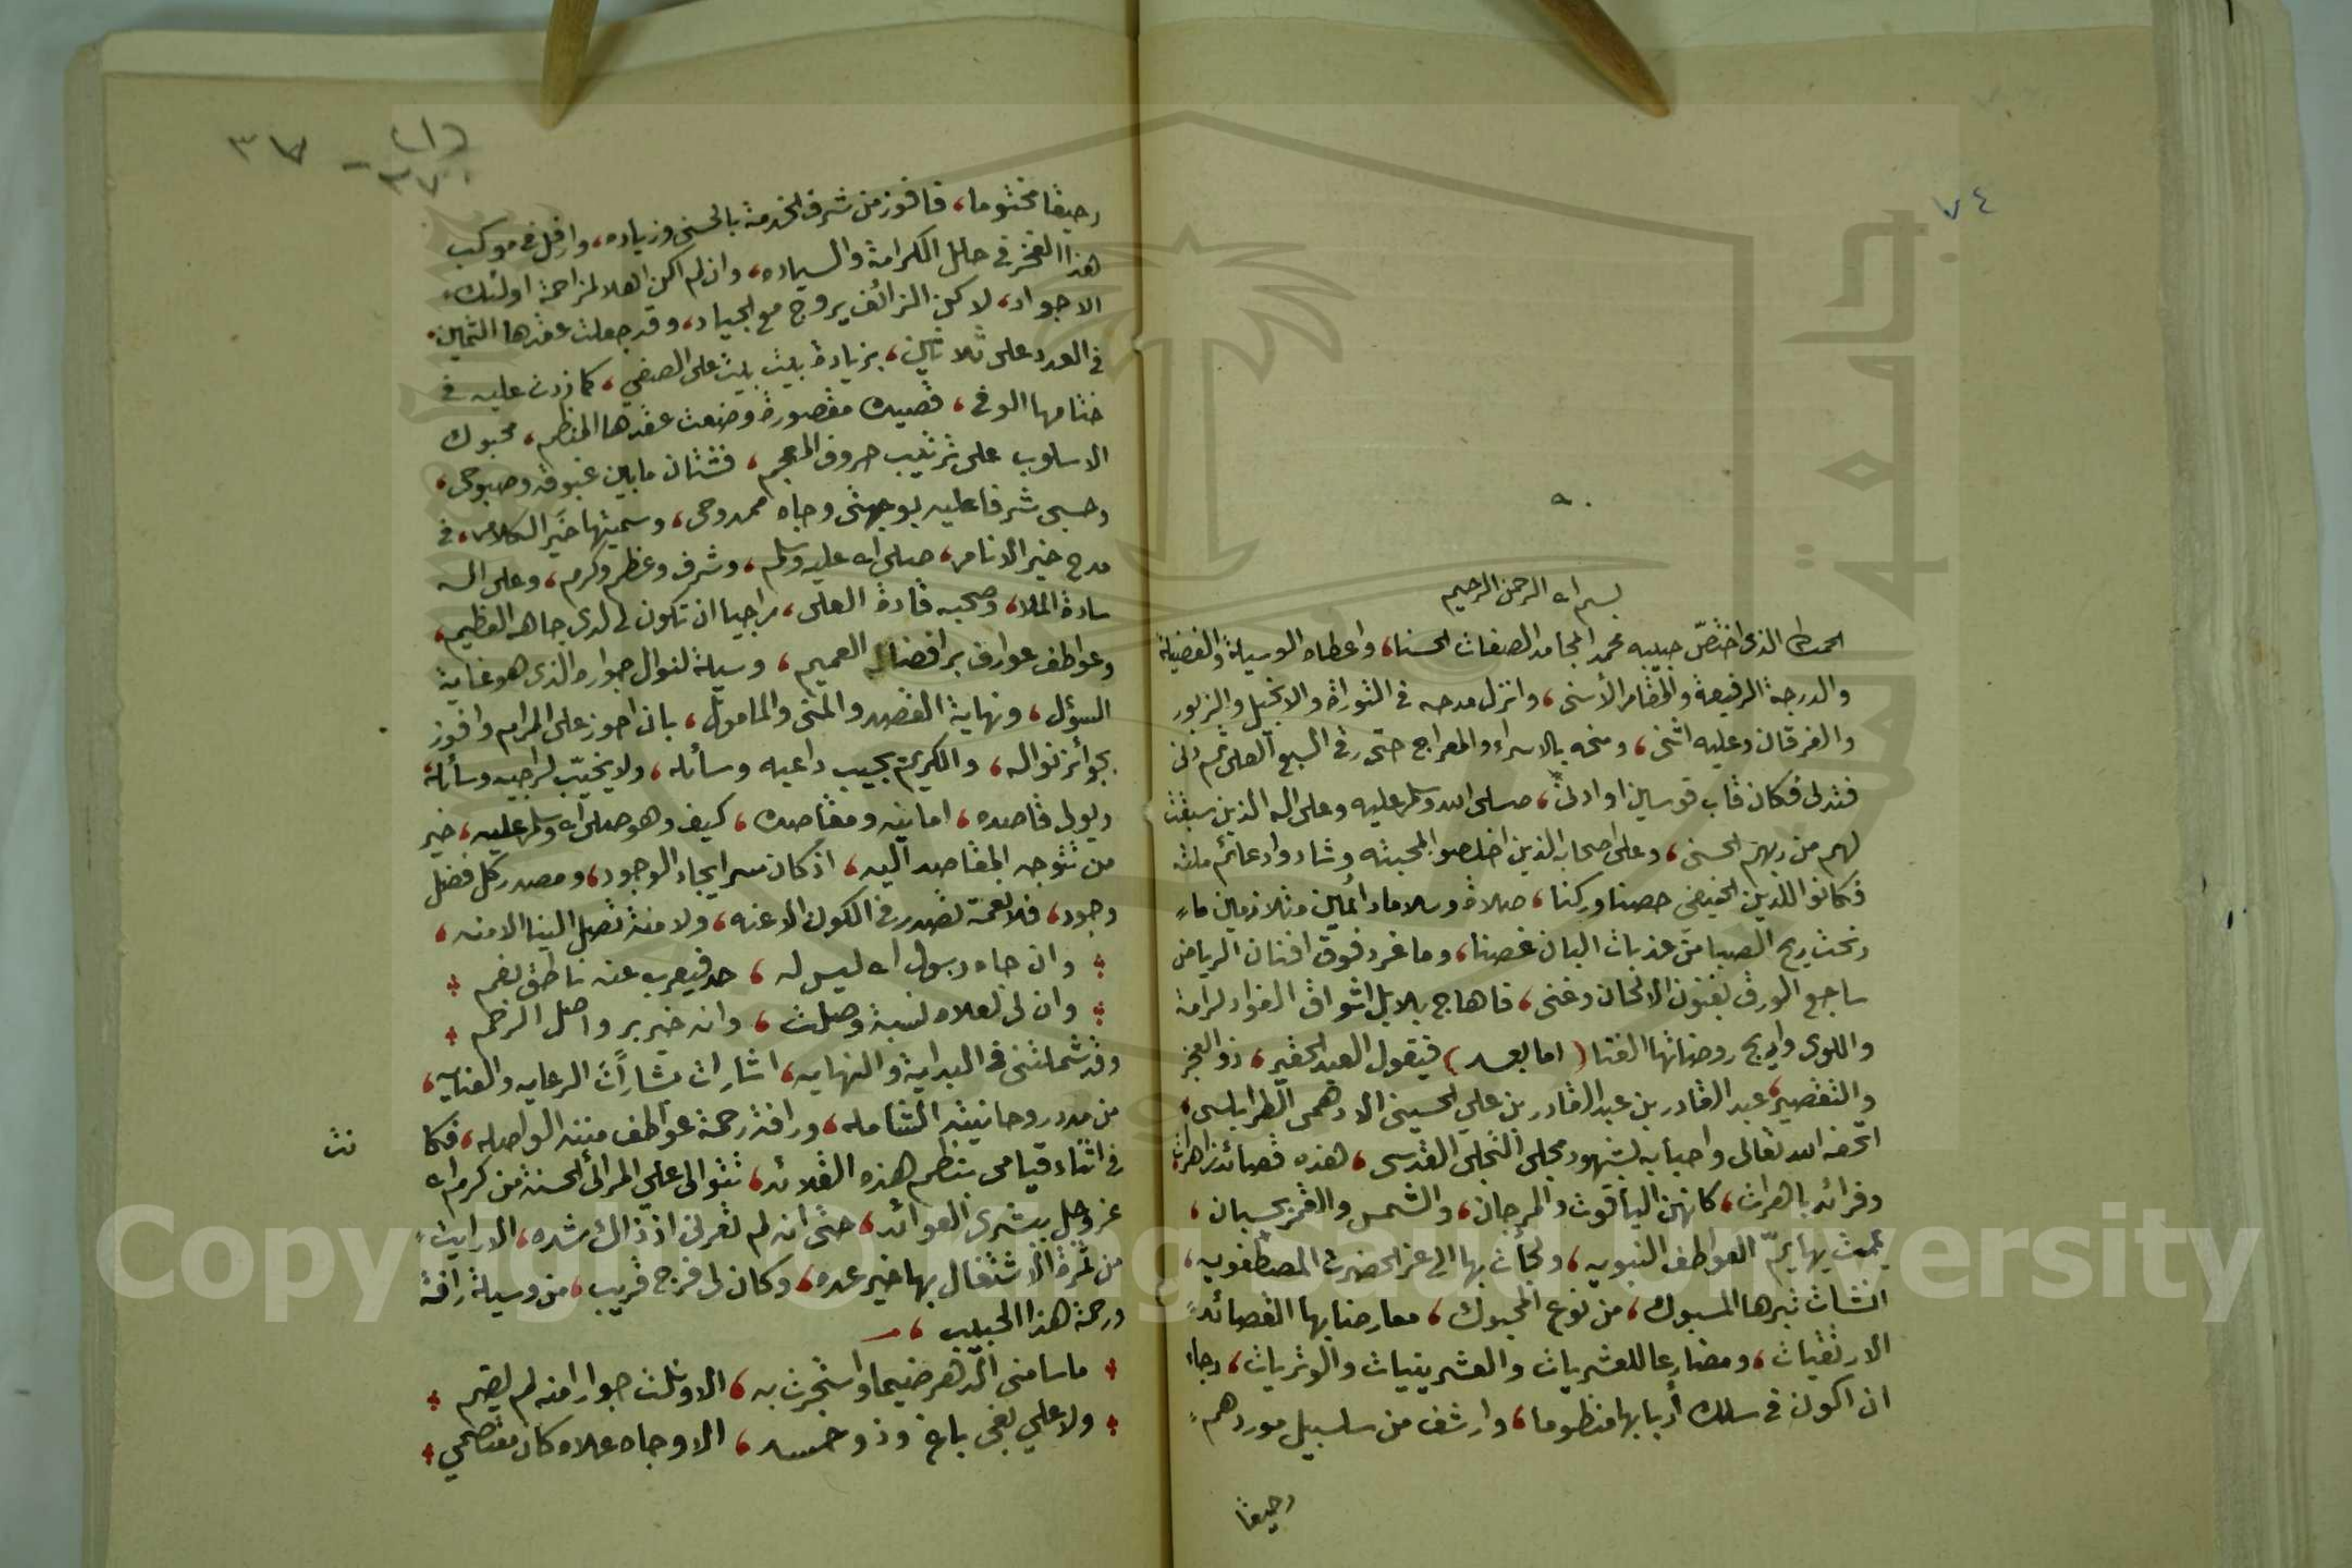 ٧٤
بسم الله الرحمن الرحيم
الحمد لله الذى اختصّ حبيبه محمد المحامد الصفات الحسنا، واعطاه الوسيلة والفضيلة
والدرجة الرفيعة والمقام الأسنى، وانزل مدحه فى التوراة والانجيل والزبور
والفرقان وعليه اثنى، ومنحه بالاسراء والمعراج حتى رقى السبع العلى ثم دنى
فتدلى فكان قاب قوسين او ادنى، صلى الله وسلم عليه وعلى اله الذين سبقت
لهم من ربهم الحسنى، وعلى اصحابه الذين اخلصوا لمحبته وشادوا دعائم ملته
فكانوا للدين الحنيفي حصنا وركنا، صلاة وسلاما دائمين متلازمين ما
رنحت ريح الصبا من عذبات البان غصنا، وما غرد فوق افنان الرياض
ساجع الورق بفنون الالحان وغنى، فاهاج بلابل اشواق الفؤاد لرامة
واللوى واريج روضاتها الغنا (اما بعد) فيقول العبد الحقير، ذو العجز
والتقصير، عبد القادر بن عبد القادر بن علي الحسينى الادهمى الطرابلسى،
اتحفه الله تعالى واحبابه بشهود مجلى التجلى القدسى، هذه قصائد زاهرات
وفرائد باهرات، كانهن الياقوت والمرجان، والشمس والقمر بحسبان،
يممت بها يمّ العواطف النبويه، ولجأت بها الى عز الحضرت المصطفويه،
انشات تبرها المسبوك، من نوع المحبوك، معارضا بها القصائد
الارتقيات، ومضارعا للعشريات والعشرينيات والوتريات، رجاء
ان اكون فى سلك أربابها منظوما، وارشف من سلسبيل موردهم
رحيقا
٣٧
رحيقا مختوما، فافوز من شرف الخدمة بالحسنى وزياده، وارفل فى موكب
هذا الفخر فى حلل الكرامة والسياده، وان لم اكن اهلا لمزاحمة اولئك
الاجواد، لاكن الزائف يروج مع الجياد، وقد جعلت عقدها الثمين
فى العدد على ثلاثين، بزيادة بيت بيت على الصفي، كما زدت عليه فى
ختامها الوفى، قصيدة مقصورة وضعت عقدها المنظم، محبوك
الاسلوب على ترتيب حروف المعجم، فشتان ما بين غبوقه وصبوحى،
وحسبى شرفا عليه بوجهتى وجاه ممدوحى، وسميتها خير الكلام، فى
مدح خير الانام، صلى الله عليه وسلم، وشرف وعظم وكرم، وعلى اله
سادة الملا، وصحبه قادة العلى، راجيا ان تكون لى لدى جاهه العظيم،
وعواطف عوارف بر افضاله العميم، وسيلة لنوال جواره الذى هو غاية
السؤل، ونهاية القصد والمنى والمامول، بان احوز على المرام وافوز
بجوائز نواله، والكريم يجيب داعيه وسأله، ولا يخيّب لراجيه وسأله
ويولى قاصده، امانيه ومقاصده، كيف وهو صلى الله وسلم عليه، خير
من تتوجه المقاصد اليه، اذ كان سر ايجاد الوجود، ومصدر كل فضل
وجود، فلا نعمة تصدر فى الكون الا عنه، ولا منة تصل الينا الا منه،
وان جاه رسول الله ليس له، حد فيعرب عنه ناطق بفم
وان لى لعلاه نسبة وصلت، وانه خير بر واصل الرحم
وقد شملتنى فى البداية والنهايه، اشارات بشارات الرعايه والعنايه،
من مدد روحانيته الشامله، ورافة رحمة عواطف مننه الواصله، فكا
نت
فى اثناء قيامى بنظم هذه القلائد، تتوالى علي المرائى الحسنة من كرم الله
عز وجل ببشرى العوائد، حتى انه لم تعرنى اذ ذاك شده، الا رايت
من ثمرة الاشتغال بها خير عده، وكان لى فرج قريب، من وسيلة رافة
ورحمة هذا الحبيب،
ما سامنى الدهر ضيما واستجرت به، الا ونلت جوارا منه لم يضم
ولا علي بغى باغ وذو حسد، الا وجاه علاه كان معتصمي
Copyright © King Saud University
جامعة الملك سعود